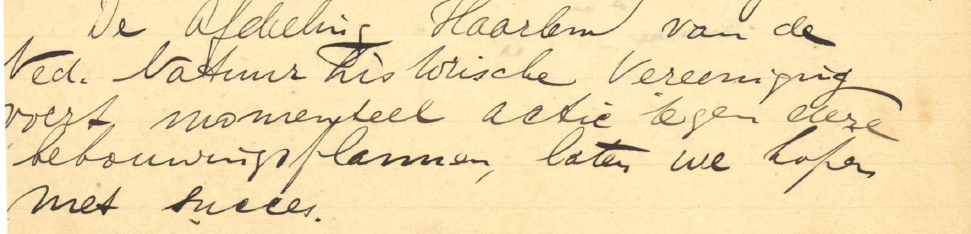 De Afdeeling Haarlem van de
Ned. Natuurhistorische Vereeniging
voert momenteel actie tegen deze
bebouwingsplannen, laten we hopen
met succes.